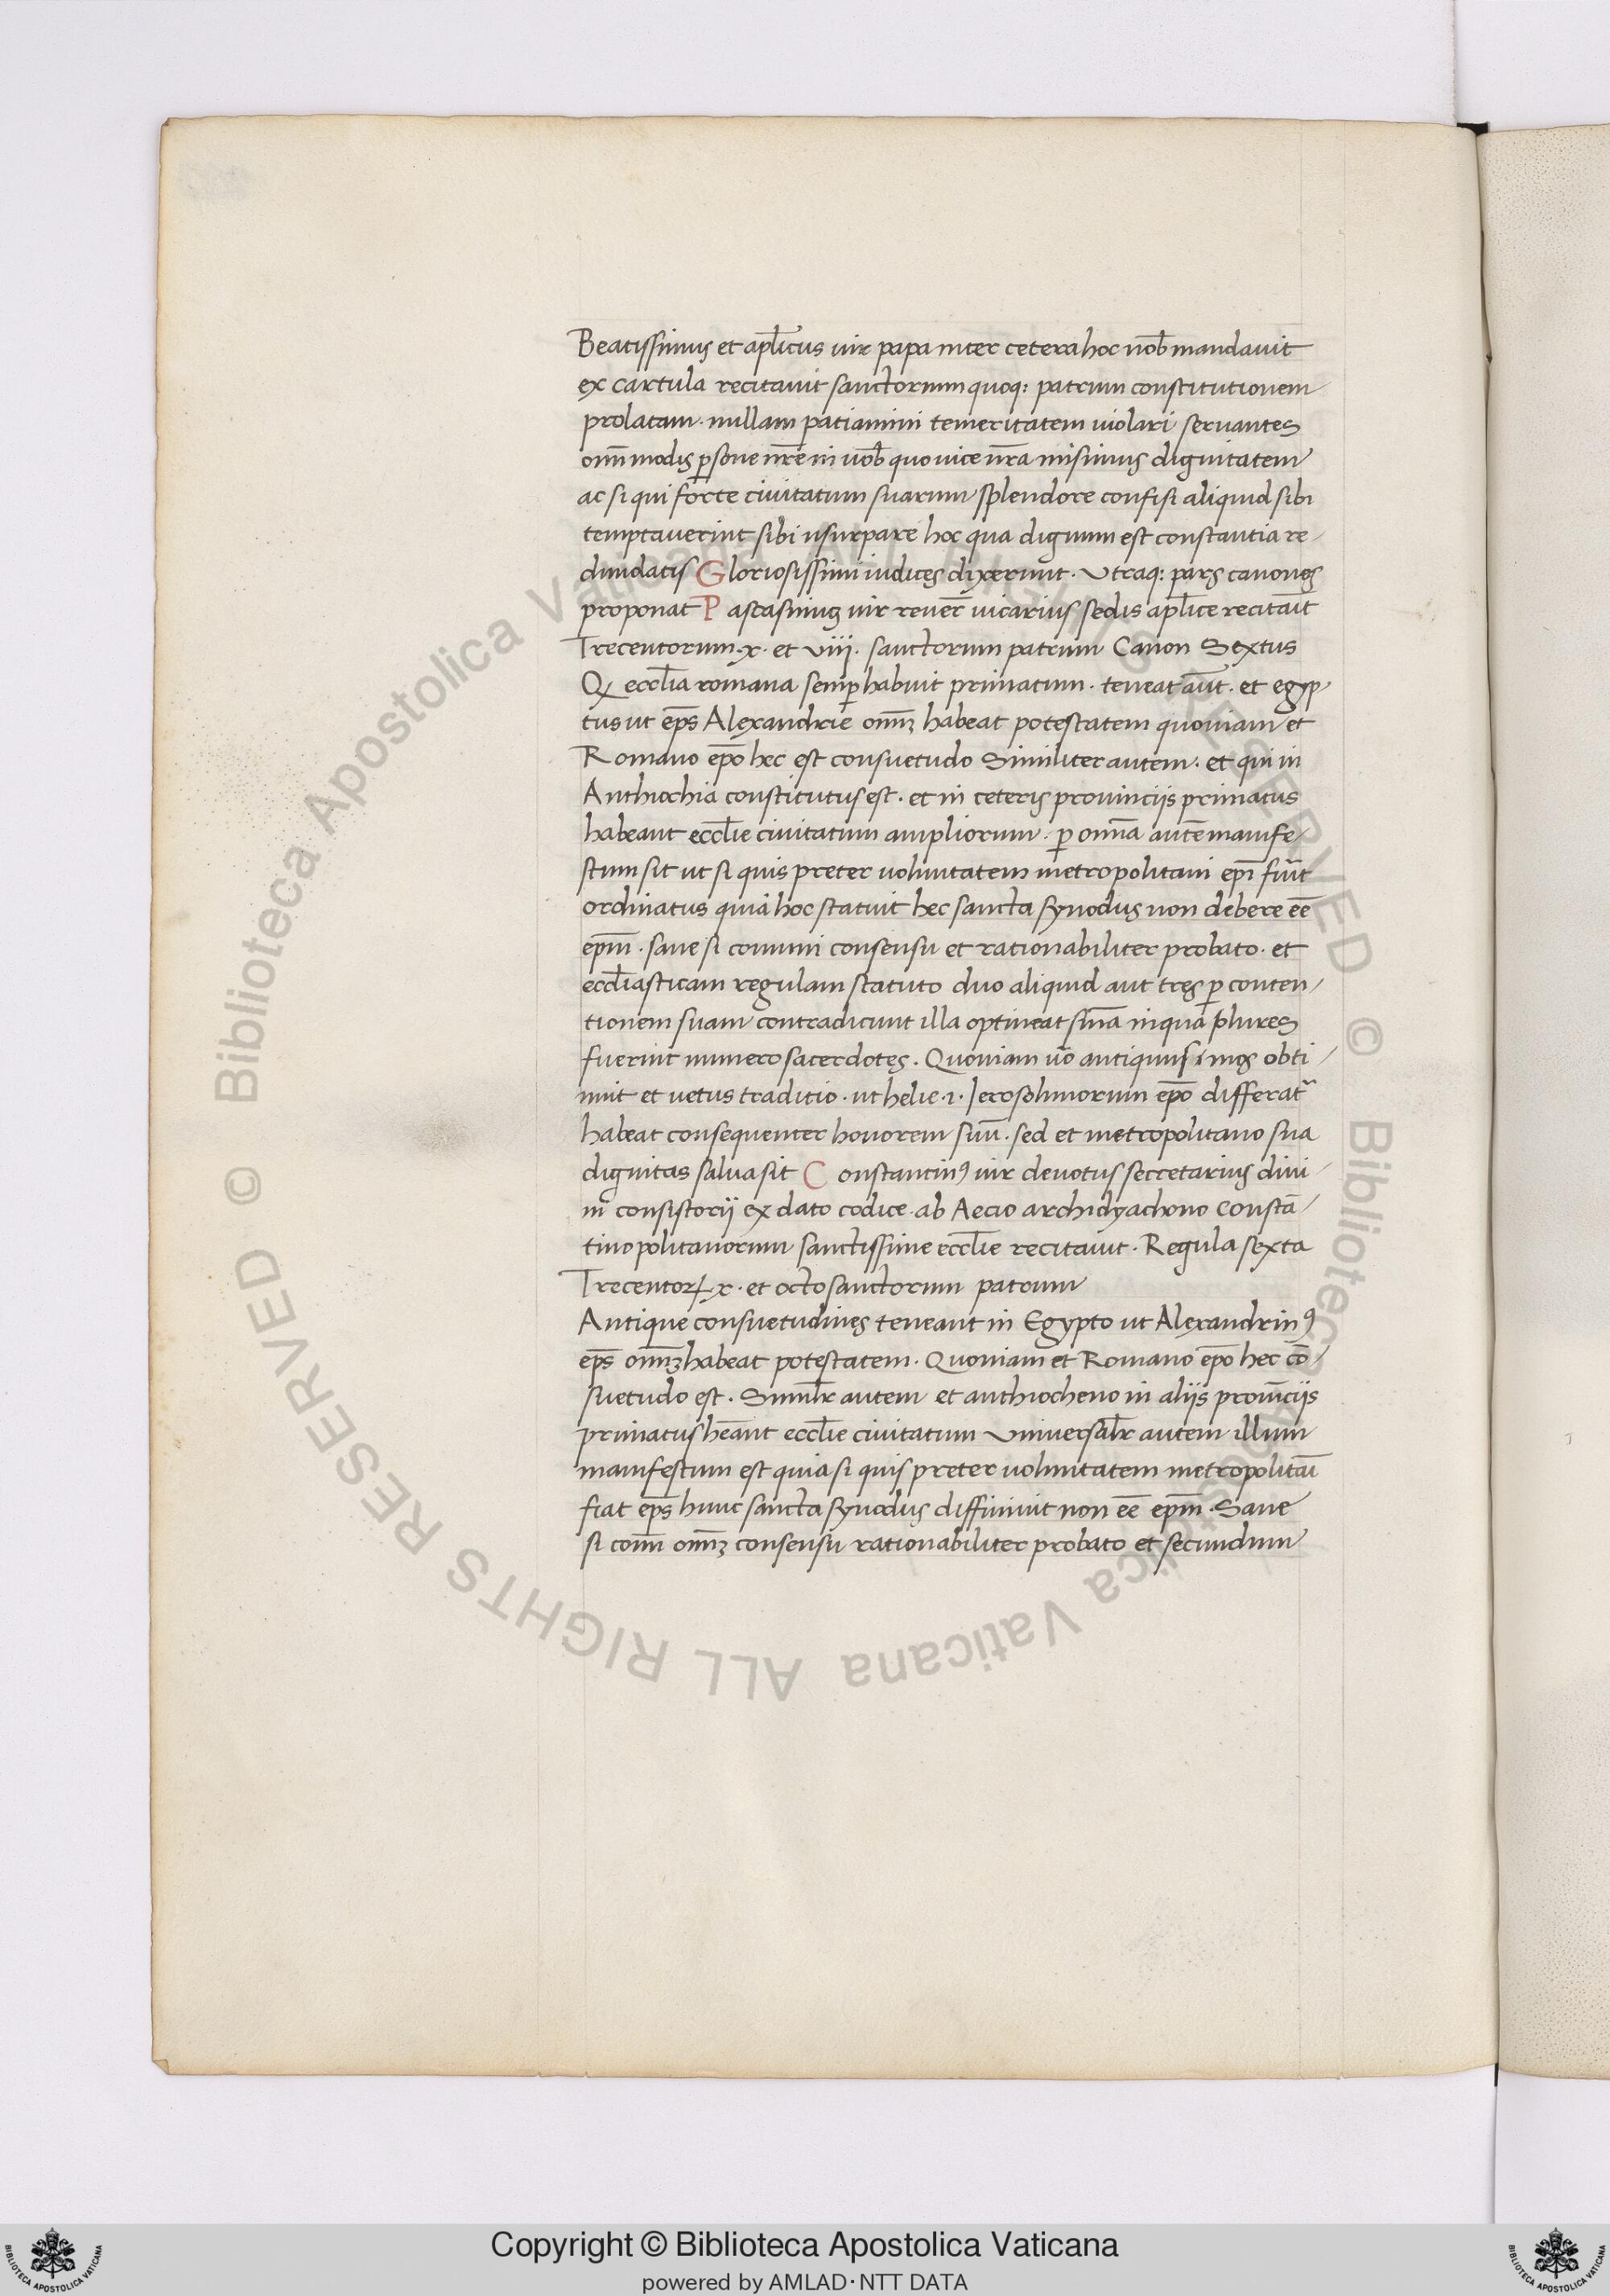 Beatissimus et apl̄icus uir papa inter cetera hoc nob̄ mandauit
ex cartula recitauit sanctorum quoq: patrum constitutionem
prolatam · nullam patiamini temeritatem uiolari seruantes
om̄imodis ꝑsone nr̄e in uob̄ quo uice nr̄a misimus dignitatem
ac si qui forte ciuitatum suarum splendore confisi aliquid sibi
temptauerint sibi usurpare hoc qua dignum est constantia re
dundatis Gloriosissimi iudices dixerunt · Vtraq: pars canones
proponat Pascasinus uir reuer̄ uicarius sedis apl̄ice recitāit
Trecentorum · x · et viij · sanctorum patrum Canon Sextus
Qꝫ eccl̄ia romana semꝑ habuit primatum · teneat aūt · et egyp
tus ut ep̄s Alexandrie om̄iꝫ habeat potestatem quoniam et
Romano ep̄o hec est consuetudo Similiter autem · et qui in
Anthiochia constitutus est · et in ceteris prouincijs primatus
habeant eccl̄ie ciuitatum ampliorum · ꝑ omn̄a autē manife
stum sit ut si quis preter uoluntatem metropolitani ep̄i fuīt
ordinatus quia hoc statuit hec sancta synodus non debere eē
ep̄m · sane si comuni consensu et rationabiliter probato · et
eccl̄iasticam regulam statuto duo aliquid aut tres ꝑ conten
tionem suam contradicunt illa optineat sn̄ia in qua plures
fuerint numero sacerdotes · Quoniam uō antiquus i mos obti
nuit et uetus traditio · ut helie · i · Jerosolimorum ep̄o differat᷑
habeat consequenter honorem suū · sed et metropolitano sua
dignitas salua sit Constantinꝰ uir deuotus secretarius diui
ni consistorij ex dato codice · ab Aecio archidyachono Constā
tinopolitanorum sanctissime eccl̄ie recitauit · Regula sexta
Trecentoꝝ x · et octo sanctorum patrum
Antique consuetudines teneant in Egypto ut Alexandrinꝰ
ep̄s om̄iꝫ habeat potestatem · Quoniam et Romano ep̄o hec cō
suetudo est · Similr̄ autem et anthiocheno in aliis prouīcijs
primatus hēant eccl̄ie ciuitatum Vniuersalr̄ autem illum
manifestum est quia si quis preter uoluntatem metropolitāi
fiat ep̄s hunc sancta synodus diffiniuit non eē ep̄m · Sane
si com̄i om̄iꝫ consensu rationabiliter probato et secundum
© Biblioteca Apostolica Vaticana ALL RIGHTS RESERVED © Biblioteca Apostolica Vaticana ALL RIGHTS RESERVED
Copyright © Biblioteca Apostolica Vaticana
powered by AMLAD·NTT DATA
BIBLIOTECA APOSTOLICA VATICANA
BIBLIOTECA APOSTOLICA VATICANA